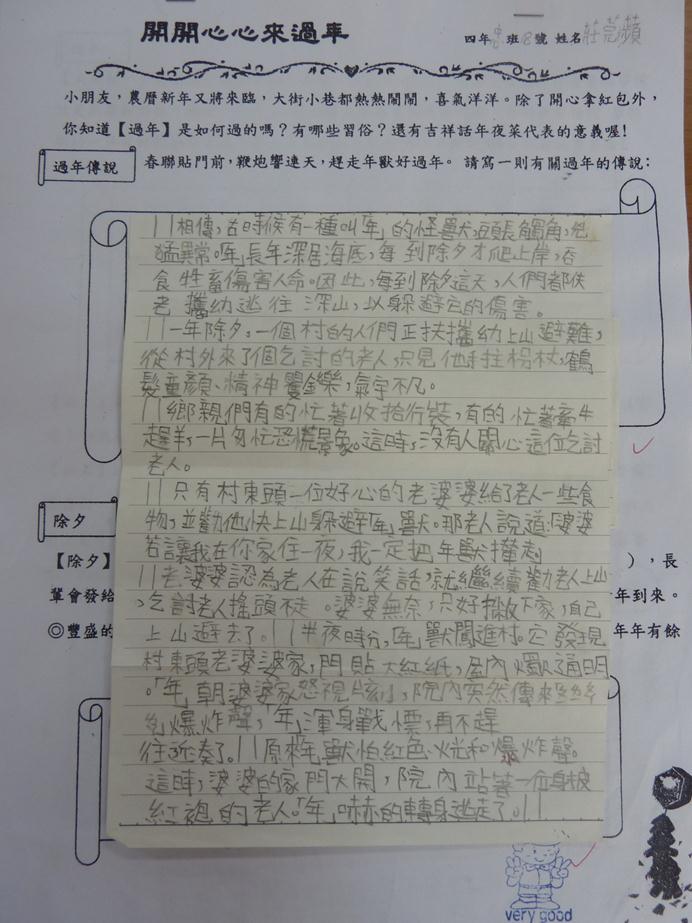 開開心心來過年
四年 班 號 姓名
小朋友，農曆新年又將來臨，大街小巷都熱熱鬧鬧，喜氣洋洋。除了開心拿紅包外，
你知道【過年】是如何過的嗎？有哪些習俗？還有吉祥話年夜菜代表的意義喔！
過年傳說
春聯貼門前，鞭炮響連天，趕走年獸好過年。 請寫一則有關過年的傳說：
相傳，古時候有一種叫「年」的怪獸，頭長觸角，兇
猛異常。「年」長年深居海底，每到除夕才爬上岸，吞
食牲畜傷害人命。因此，每到除夕這天，人們都扶
老攜幼逃往深山，以躲避它的傷害。
一年除夕，一個村的人們正扶攜幼上山避難，
從村外來了個乞討的老人，只見他手拄枴杖，鶴
髮童顏、精神矍鑠，氣宇不凡。
鄉親們有的忙著收拾行裝，有的忙著牽牛
趕羊，一片匆忙恐慌景象。這時，沒有人關心這位乞討
老人。
只有村東頭一位好心的老婆婆給了老人一些食
物，並勸他快上山躲避「年」獸。那老人說道：「婆婆
若讓我在你家住一夜，我一定把年獸攆走
老婆婆認為老人在說笑話，就繼續勸老人上山
，乞討老人搖頭不走。婆婆無奈，只好拋下家，自己
上山避去了。半夜時分，「年」獸闖進村。它發現
村東頭老婆婆家，門貼大紅紙，屋內燭火通明
。「年」朝婆婆家怒視片刻，院內突然傳來
爆炸聲，「年」渾身戰慄，再不趕
往近湊了。原來「年」獸怕紅色、火光和爆炸聲。
這時，婆婆的家門大開，院內站著一位身披
紅袍的老人。「年」嚇赫的轉身逃走了。
除夕
【除夕】
），長
輩會發給
年到來。
◎豐盛的
年年有餘
very good